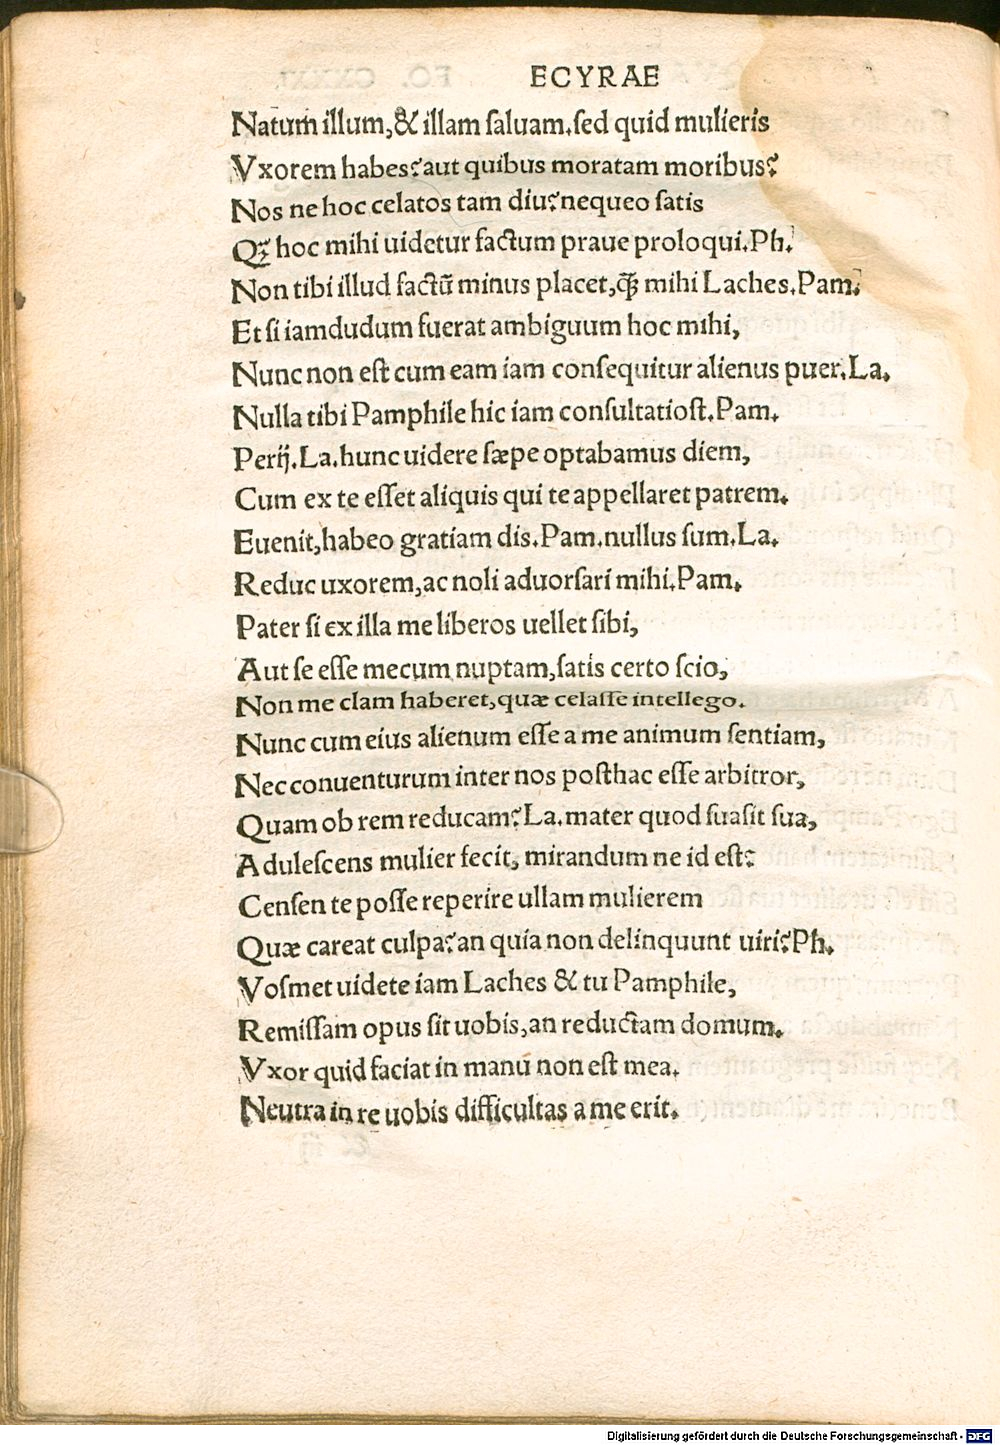 ECYRAE
Natum illum,& illam ſaluam.ſed quid mulieris
Vxorem habes?aut quibus moratam moribus?
Nos ne hoc celatos tam diu?nequeo ſatis
Qꝫ hoc mihi uidetur factum praue proloqui.Ph.
Non tibi illud factũ minus placet,ꝙ̃ mihi Laches.Pam.
Et ſi iamdudum fuerat ambiguum hoc mihi,
Nunc non eſt cum eam iam conſequitur alienus puer.La.
Nulla tibi Pamphile hic iam conſultatioſt.Pam.
Perij.La.hunc uidere ſæpe optabamus diem,
Cum ex te eſſet aliquis qui te appellaret patrem.
Euenit,habeo gratiam dis.Pam.nullus ſum.La.
Reduc uxorem,ac noli aduorſari mihi.Pam.
Pater ſi ex illa me liberos uellet ſibi,
Aut ſe eſſe mecum nuptam,ſatis certo ſcio,
Non me clam haberet,quæ celaſſe intellego.
Nunc cum eius alienum eſſe a me animum ſentiam,
Nec conuenturum inter nos poſthac eſſe arbitror,
Quam ob rem reducam?La.mater quod ſuaſit ſua,
Aduleſcens mulier fecit, mirandum ne id eſt?
Cenſen te poſſe reperire ullam mulierem
Quæ careat culpa?an quia non delinquunt uiri?Ph.
Voſmet uidete iam Laches & tu Pamphile,
Remiſſam opus ſit uobis,an reductam domum.
Vxor quid faciat in manu non eſt mea.
Neutra in re uobis difficultas a me erit.
Digitalisierung gefördert durch die Deutsche Forschungsgemeinschaft - DFG